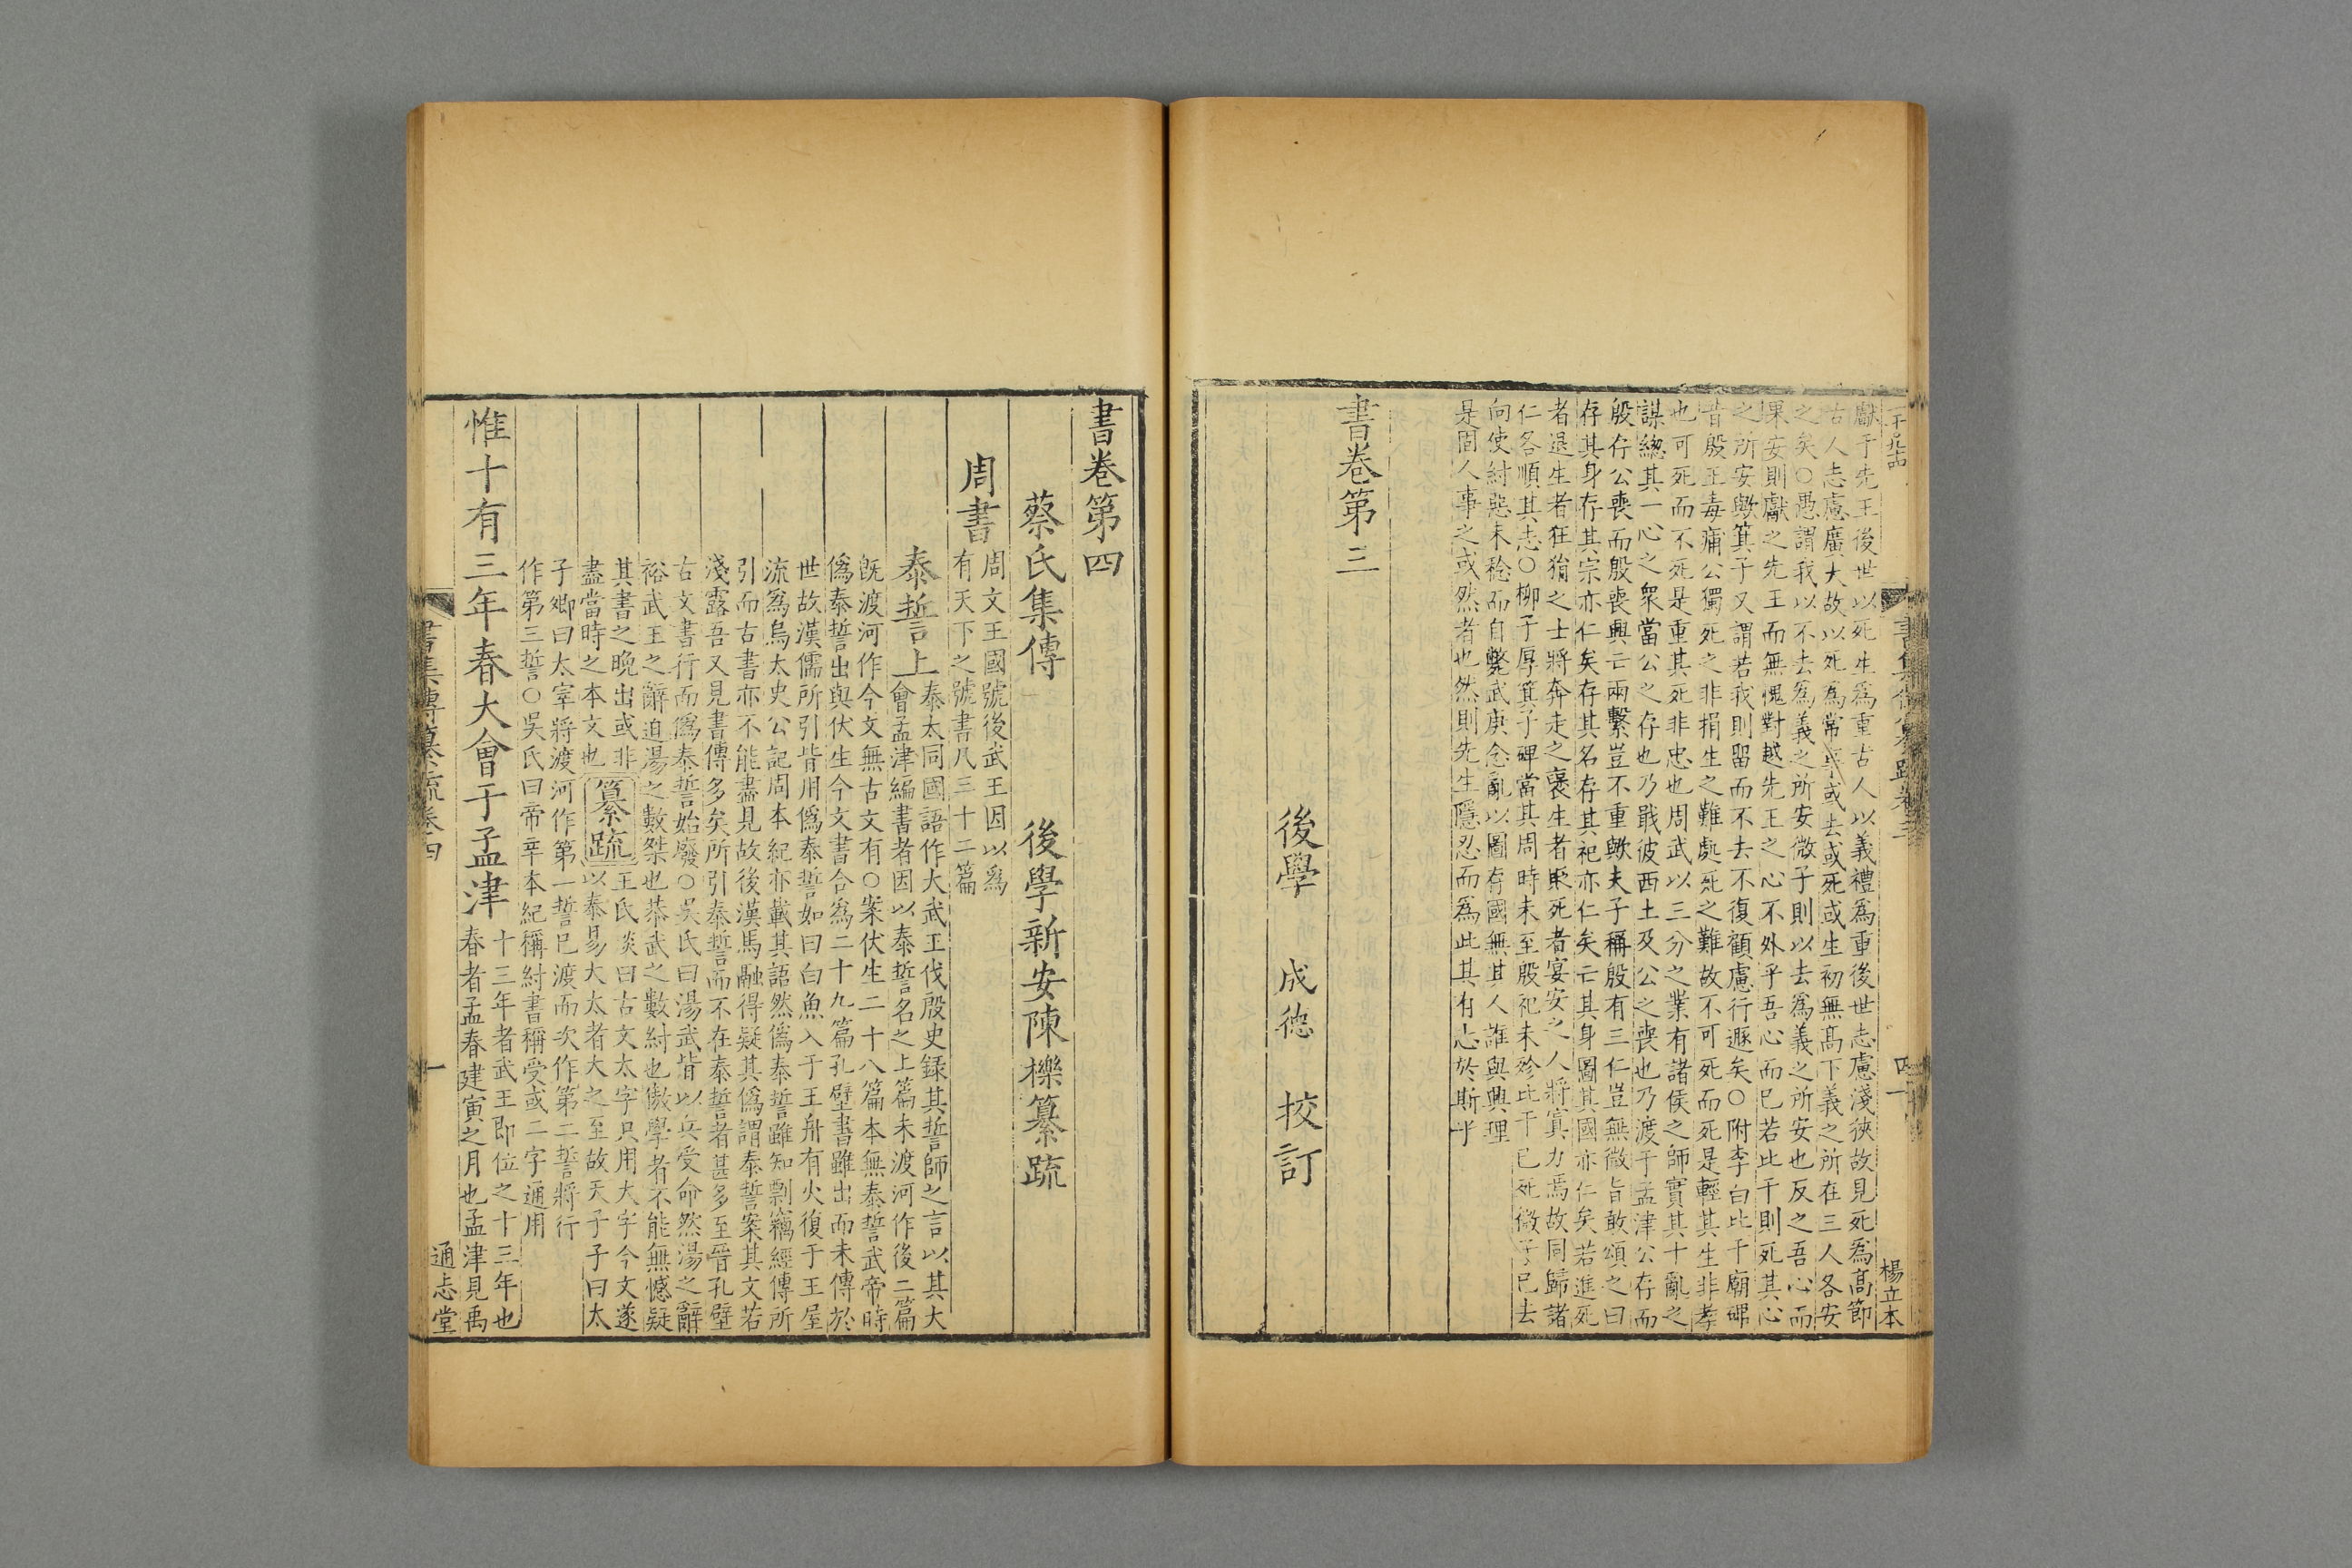 獻于先王後世以死生爲重古人以義禮爲重後世志慮淺狹故見死爲高節
古人志慮廣大故以死爲常事或去或死或生初無高下義之所在三人各安
之矣○愚謂我以不去爲義之所安微子則以去爲義之所安也反之吾心而
果安則獻之先王而無愧對越先王之心不外乎吾心而已若比干則死其心
之所安歟箕子又謂若我則留而不去不復顧慮行遯矣○附李白比干廟碑
昔殷王毒痡公獨死之非捐生之難處死之難故不可死而死是輕其生非孝
也可死而不死是重其死非忠也周武以三分之業有諸侯之師實其十亂之
謀緫其一心之衆當公之存也乃戢彼西土及公之喪也乃渡于孟津公存而
殷存公喪而殷喪興亡兩繫豈不重歟夫子稱殷有三仁豈無微旨敢頌之曰
存其身存其宗亦仁矣存其名存其祀亦仁矣亡其身圖其國亦仁矣若進死
者退生者狂狷之士將奔走之褒生者貶死者宴安之人將寘力焉故同歸諸
仁各順其志○柳子厚箕子碑當其周時未至殷祀未殄比干已死微子已去
向使紂惡未稔而自斃武庚念亂以圖存國無其人誰與興理
是固人事之或然者也然則先生隱忍而爲此其有志於斯乎
書卷第三
後學 成德 挍訂
四十
楊立本
書卷第四
蔡氏集傳 後學新安陳櫟纂疏
周書
周文王國號後武王因以爲
有天下之號書凡三十二篇
泰誓上
泰太同國語作大武王伐殷史録其誓師之言以其大
會孟津編書者因以泰誓名之上篇未渡河作後二篇
旣渡河作今文無古文有○案伏生二十八篇本無泰誓武帝時
僞泰誓出與伏生今文書合爲二十九篇孔壁書雖出而未傳於
世故漢儒所引皆用僞泰誓如曰白魚入于王舟有火復于王屋
流爲烏太史公記周本紀亦載其語然僞泰誓雖知剽竊經傳所
引而古書亦不能盡見故後漢馬融得疑其僞謂泰誓案其文若
淺露吾又見書傳多矣所引泰誓而不在泰誓者甚多至晉孔壁
古文書行而僞泰誓始廢○吳氏曰湯武皆以兵受命然湯之辭
裕武王之辭迫湯之數桀也恭武之數紂也傲學者不能無憾疑
其書之晚出或非
盡當時之本文也
纂疏
王氏炎曰古文太字只用大字今文遂
以泰易大太者大之至故天子子曰太
子卿曰太宰將渡河作第一誓已渡而次作第二誓將行
作第三誓○吳氏曰帝辛本紀稱紂書稱受或二字通用
惟十有三年春大會于孟津
十三年者武王即位之十三年也
春者孟春建寅之月也孟津見禹
書集傳纂疏卷四
一
通志堂